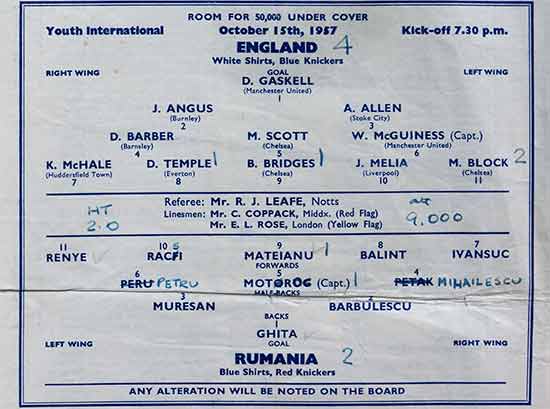 ROOM FOR 50,000 UNDER COVER
Youth International October 15th, 1957 Kick-off 7.30 p.m.
ENGLAND 4
White Shirts, Blue Knickers
RIGHT WING GOAL LEFT WING
D. GASKELL
(Manchester United)
1
J. ANGUS A. ALLEN
(Burnley) (Stoke City)
2 3
D. BARBER M. SCOTT W. McGUINESS (Capt.)
(Barnsley) (Chelsea) (Manchester United)
4 5 6
K. McHALE D. TEMPLE 1 B. BRIDGES 1 J. MELIA M. BLOCK 2
(Huddersfield Town) (Everton) (Chelsea) (Liverpool) (Chelsea)
7 8 9 10 11
Referee: Mr. R. J. LEAFE, Notts
Linesmen: Mr. C. COPPACK, Middx. (Red Flag)
Mr. E. L. ROSE, London (Yellow Flag)
HT
2.0
att
9,000
11 10 9 8 7
RENYE RACSI MATEIANU 1 BALINT IVANSUC
FORWARDS
6 5 4
PERU PETRU MOTOROG (Capt.) 1 PETAK MIHAILESCU
HALF-BACKS
3 2
MURESAN BARBULESCU
BACKS
1
GHITA
LEFT WING GOAL RIGHT WING
RUMANIA 2
Blue Shirts, Red Knickers
ANY ALTERATION WILL BE NOTED ON THE BOARD